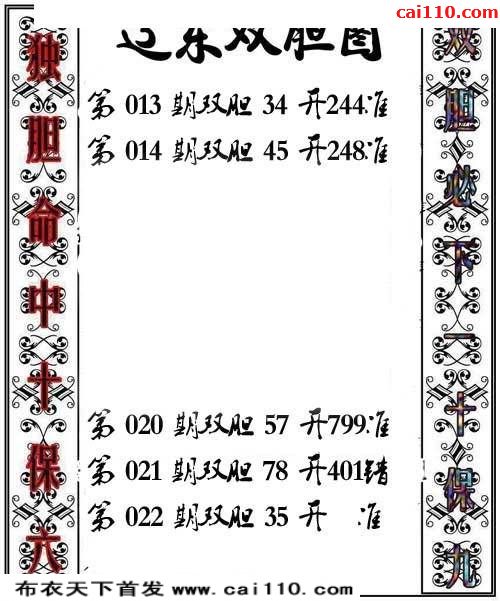 cai110.com
辽东双胆图
独胆命中十保六
第 013 期双胆 34 开244准
第 014 期双胆 45 开248准
第 020 期双胆 57 开799准
第 021 期双胆 78 开401错
第 022 期双胆 35 开 准
双胆必下一十保九
布衣天下首发 www.cai110.com